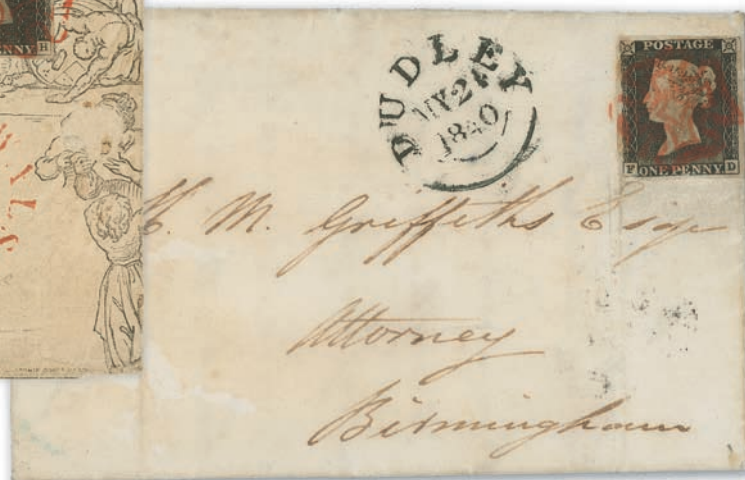 DUDLEY
MY 2
1840
POSTAGE
F ONE PENNY D
M. Griffiths Esqr
Attorney
Birmingham
PENNY H